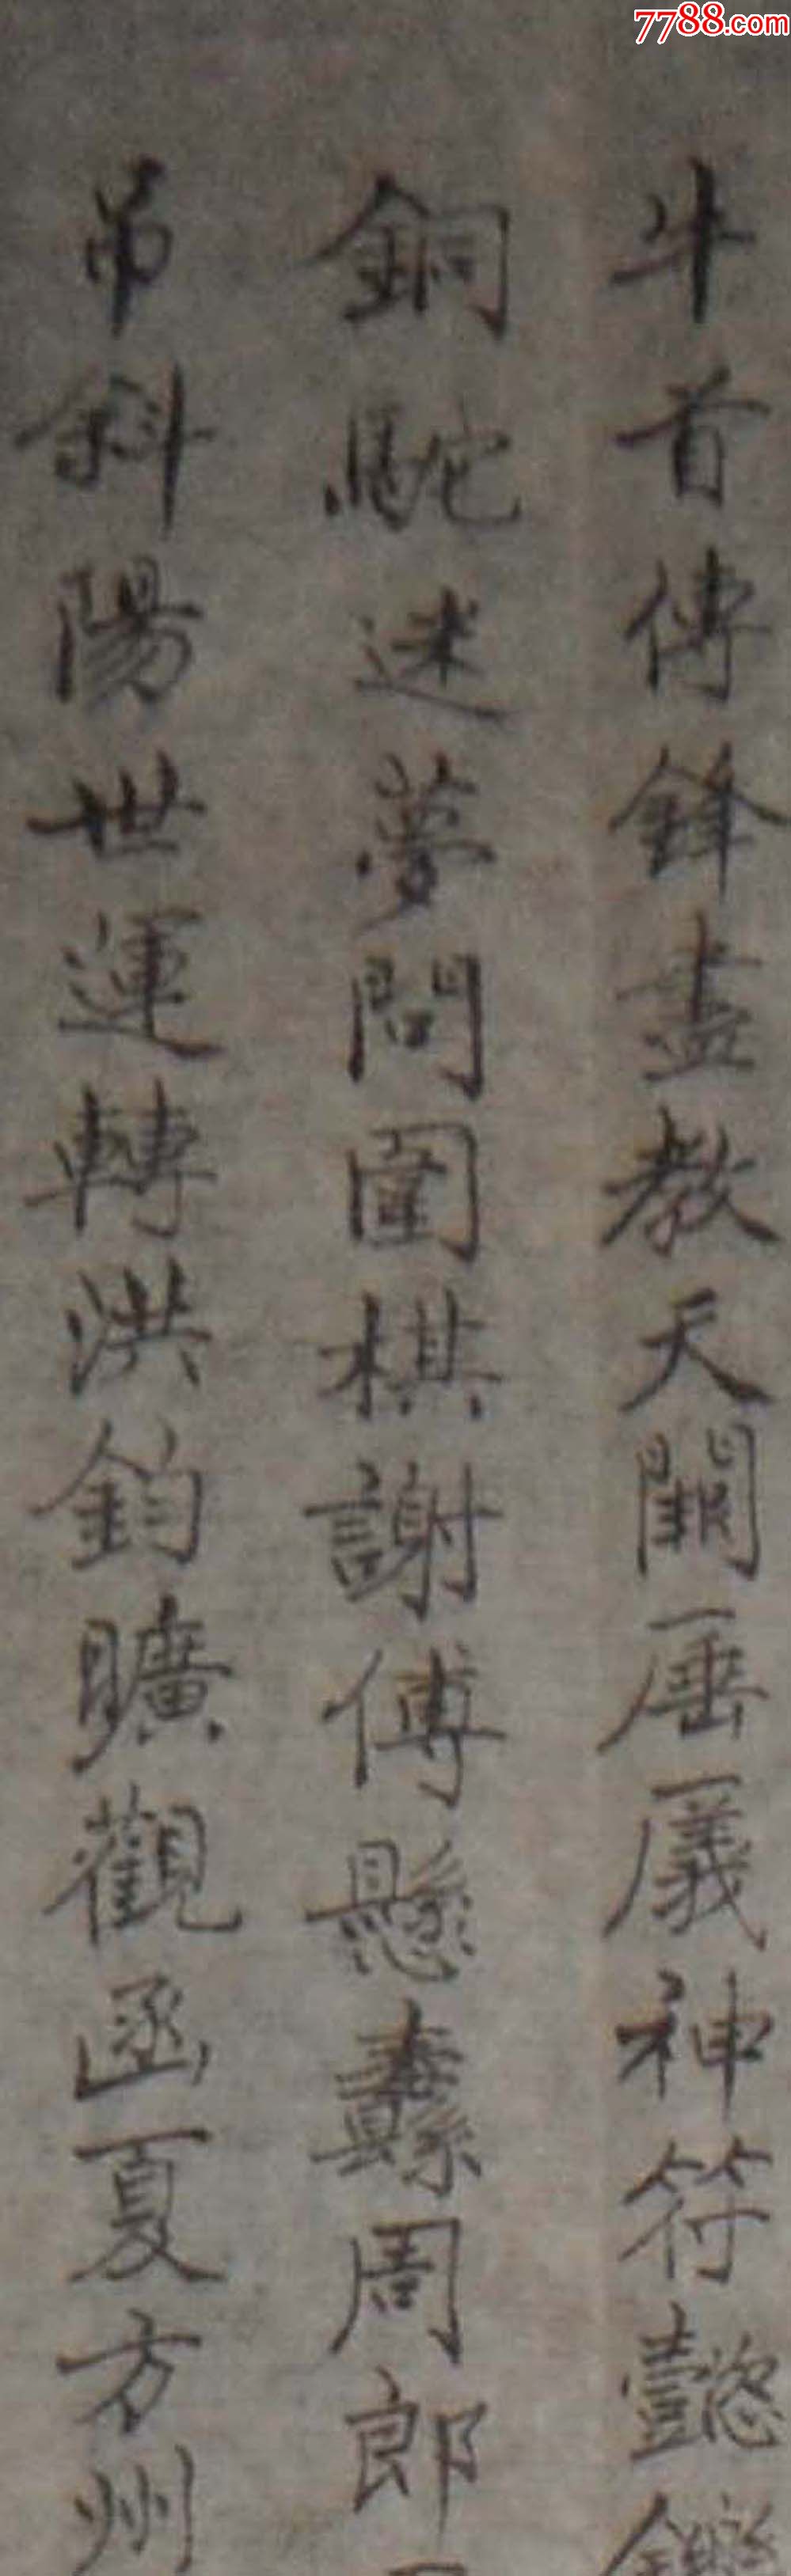 7788.com
斗首傳鋒盡教天闕厜㕒神符懿鑠
銅駝迷夢問圍棋謝傅懸纛周郎
弔斜陽世運轉洪鈞曠觀函夏方州